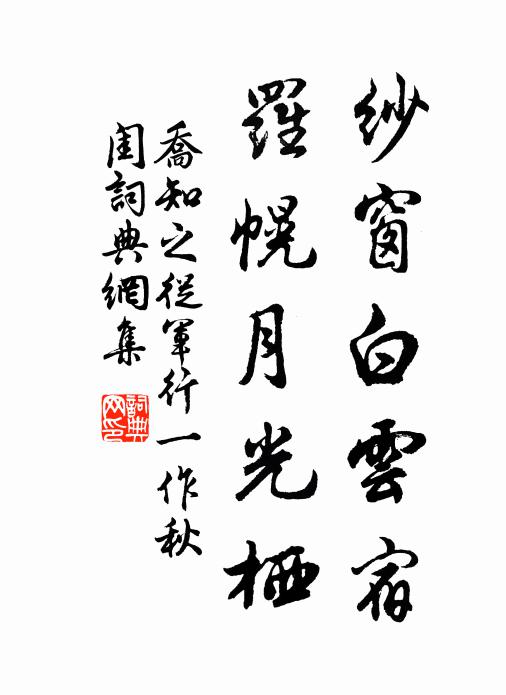 紗窗白雲宿
羅幌月光栖
喬知之從軍行一作秋
閨詞典網集
詞典网印